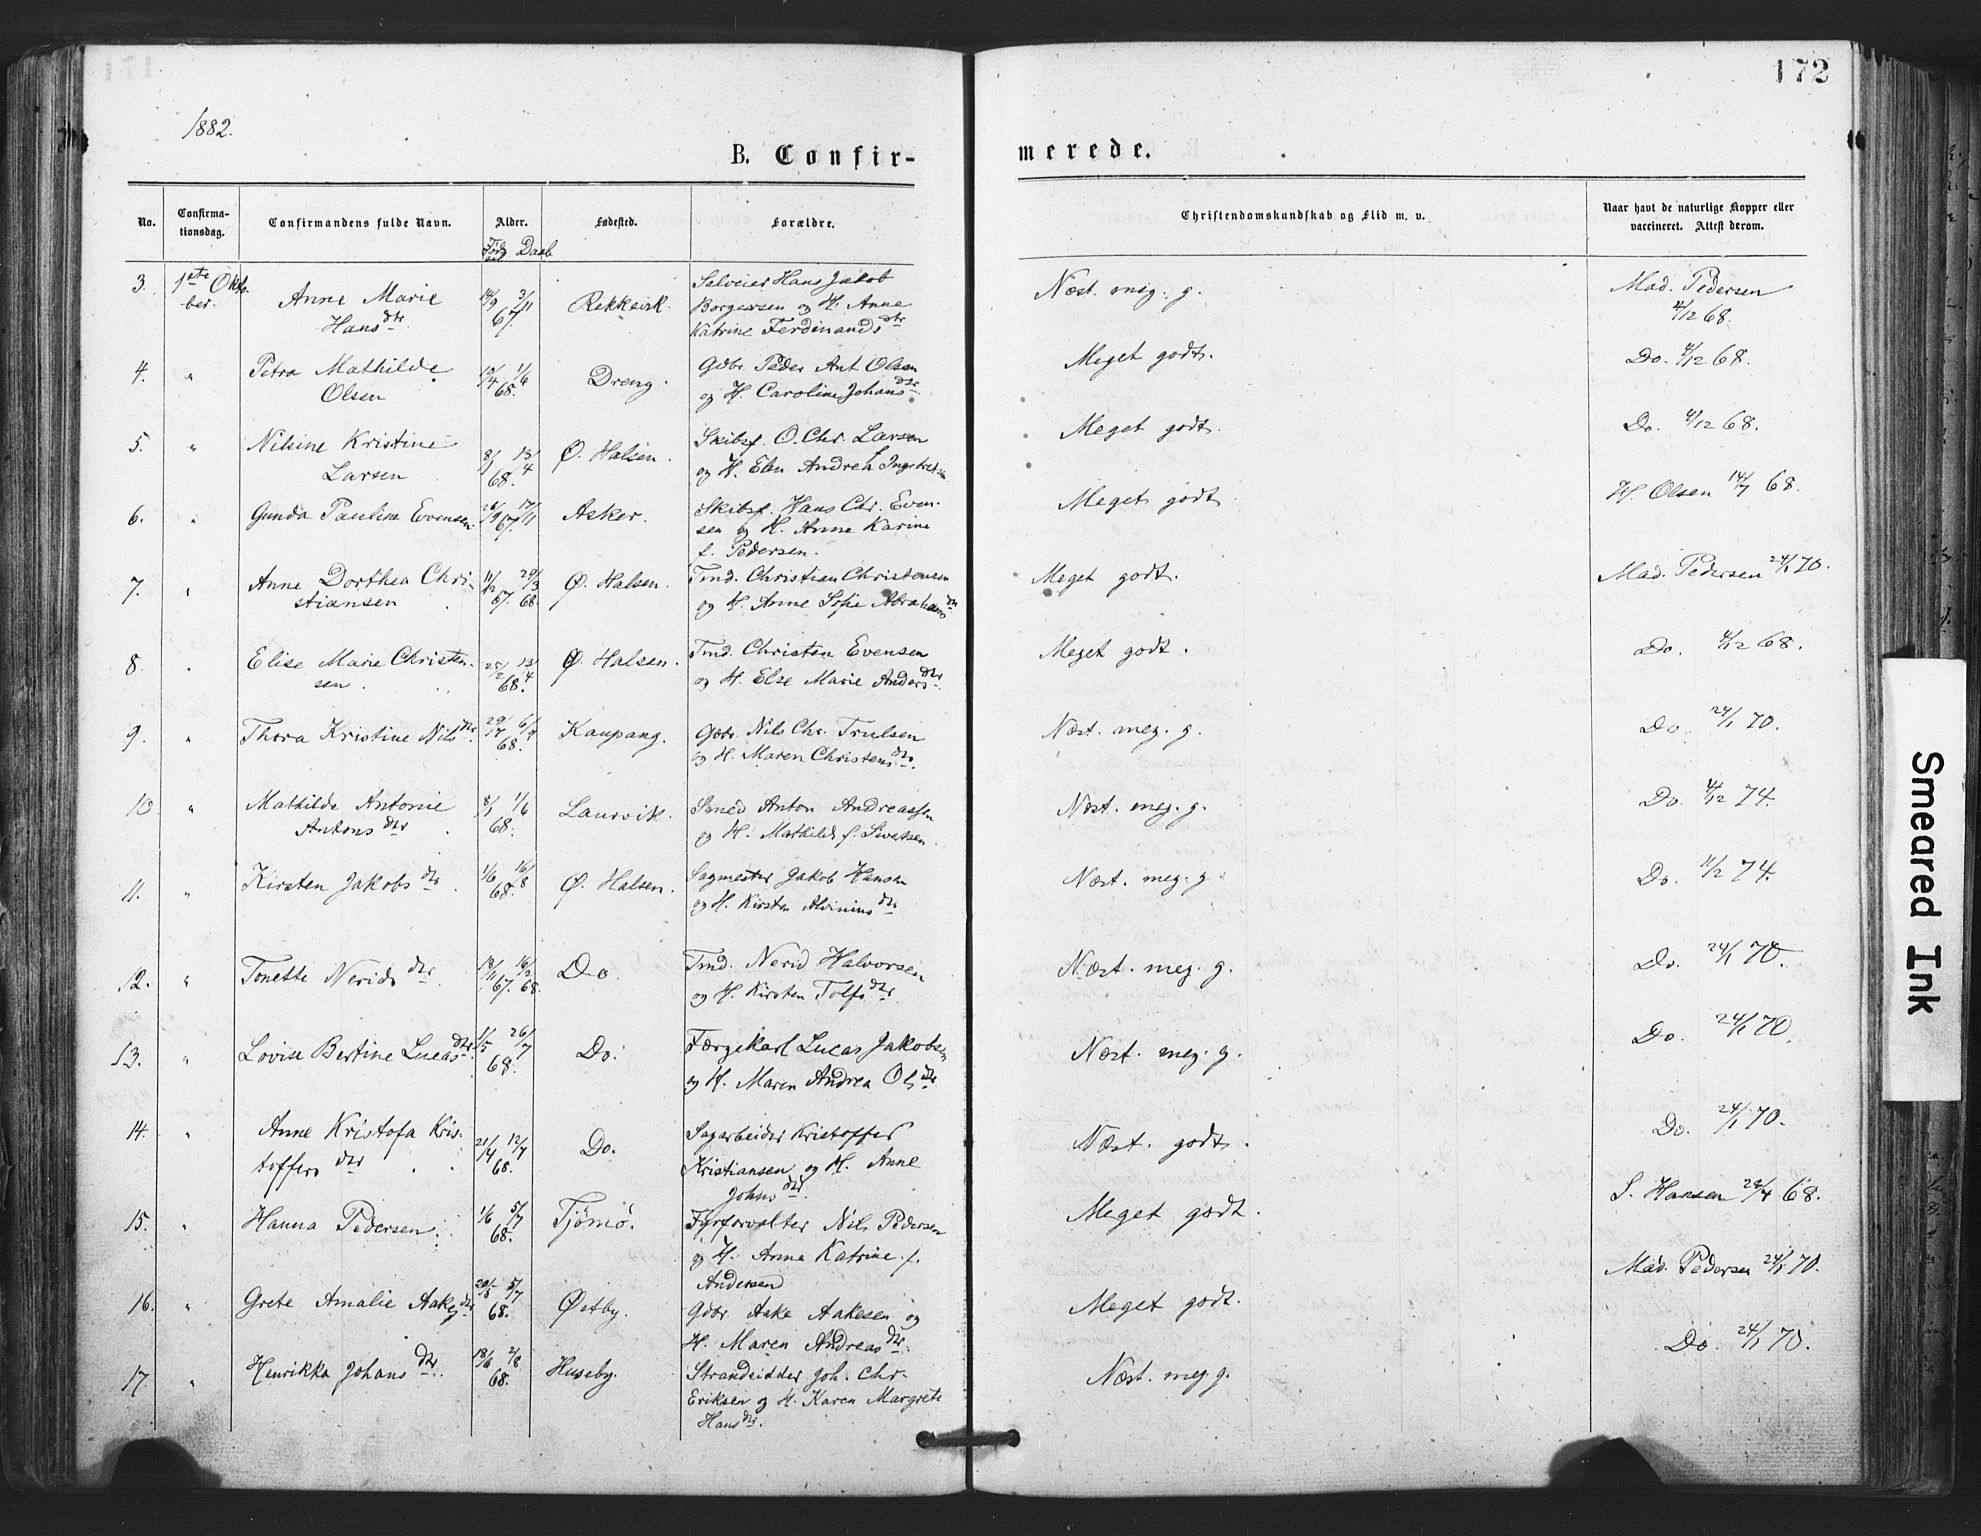 172
1882.
B. Confir-
merede.
No.
Confirma-
tionsdag.
Confirmandens fulde Navn.
Alder.
Fødested.
Forældre.
Christendomskundskab og Flid m. v.
Naar havt de naturlige Kopper eller
vaccineret. Attest derom.
Daab
3. 1ste Okto-
ber.
Anne Marie
Hansdtr
14/9 3/11
67.
Rekkevik.
Selveier Hans Jakob
Borgersen og H. Anne
Katrine Ferdinandsdtr
Næst. meg. g.
Mad. Pedersen
4/12 68.
4. "
Petra Mathilde
Olsen
68.
Dreng.
Gdbr. Peder Ant. Olsen
og H. Caroline Johansdtr.
Meget godt.
Do. 4/12 68.
5. "
Nilsine Kristine
Larsen
8/1 13/4
68.
Ø. Halsen.
Skibsf. O. Chr. Larsen
og H. Elen Andrea
Meget godt.
Do. 4/12 68.
6. "
Gunda Pauline Evensen.
26/9 17/11
67.
Asker.
Skibsf. Hans Chr. Even-
sen og H. Anne Karine
f. Pedersen.
Meget godt
H. Olsen 14/7 68.
7. "
Anne Dorthea Chri-
stiansen
11/12 29/3
67. 68.
Ø. Halsen.
Tmd. Christian Christensen
og H. Anne Sofie Abrahamsdtr
Meget godt.
Mad. Pedersen 24/1 70.
8. "
Elise Marie Christen-
sen.
25/2 13/4
68.
Ø. Halsen.
Tmd. Christen Evensen
og H. Else Marie Andersdtr.
Meget godt.
Do. 4/12 68.
9. "
Thora Kristine Nilsdtr.
68.
Kaupang.
Gdbr. Nils Chr. Trulsen
og H. Maren Christensdtr.
Næst. meg. g.
Do. 24/1 70.
10 "
Mathilde Antonie
Antonsdtr
8/1 1/6
68.
Laurvik.
Smed Anton Andreassen
og H. Mathilde f. Sivertsen.
Næst. meg. g.
Do. 4/12 74.
11. "
Kirsten Jakobsdtr.
1/6 16/8
68.
Ø. Halsen.
Sagmester Jakob Hansen
og H. Kirsten Alviniusdtr
Næst. meg. g.
Do. 11/2 74.
12. "
Tonette Neridsdtr
18/11 16/2
67. 68.
Do.
Tmd. Nerid Halvorsen
og H. Kirsten Tolfsdtr.
Næst. meg. g.
Do. 24/1 70.
13. "
Lovise Bertine Lucasdtr.
1/5 26/7
68.
Do.
Færgekarl Lucas Jakobsen
og H. Maren Andrea Olsdtr
Næst. meg. g.
Do. 24/1 70.
14. "
Anne Kristofa Kris-
toffersdtr
21/4 12/7
68.
Do.
Sagarbeider Kristoffer
Kristiansen og H. Anne
Johnsdtr.
Næst. godt.
Do. 24/1 70.
15. "
Hanna Pedersen.
1/6 5/7
68.
Tjömö.
Fyrforvalter Nils Pedersen
og H. Anne Katrine f.
Andersen
Meget godt.
S. Hansen 28/4 68.
16. "
Grete Amalie Aakesdtr
20/5 5/7
68.
Østby.
Gdbr. Aake Aakesen og
H. Maren Andreasdtr.
Meget godt.
Mad. Pedersen 24/1 70.
17. "
Henrikka Johansdtr.
18/6 2/8
68.
Huseby.
Strandsidder Joh. Chr.
Eriksen og H. Karen Margrete
Hansdtr.
Næst. meg. g.
Do. 24/1 70.
Smeared Ink